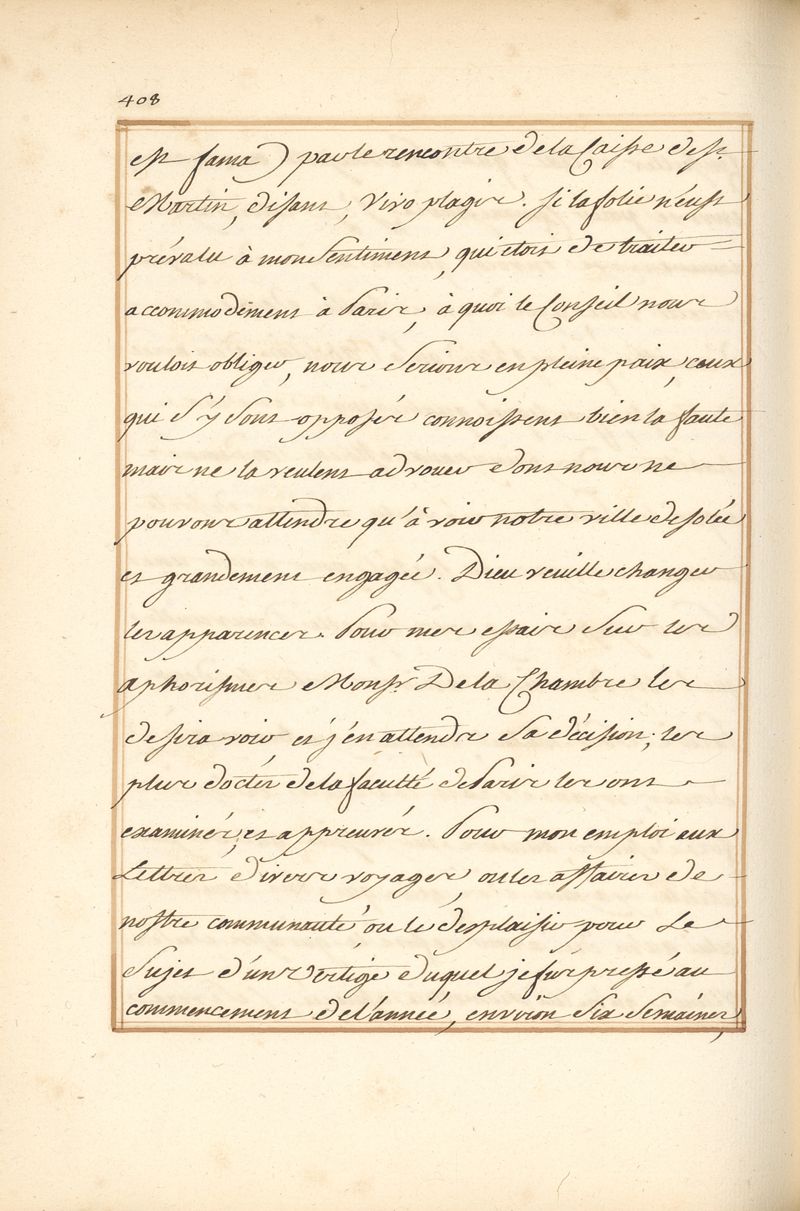 408
est fama) par le rencontre de la Caisse de St.
Martin, disant, Vivo plagis. si la folie n'eust
prévalu à mon Sentiment, qui etois de traiter
accommodément à Paris, à quoi le Conseil nous
vouloit obliger, nous Serions en pleine paix, ceux
qui s'y Sont opposés connoissent bien la faute
mais ne la veulent advouer dont nous ne
pouvons attendre qu'à voir notre ville desolée
et grandement engagée. Dieu veuille changer
les apparences. Pour mes essais Sur les
aphorismes Monsr. De la Chambre les
desira voir, et j'en attendre Sa décision; les
plus doctes de la faculté de Paris les ont
examinés, et appreuvés. Pour mon emploi aux
Lettres divers voyages, ou les affaires de
nostre communauté ou le desplaisir pour Le
Sujet d'un Vertige duquel je fus pressé au
commencement de l'année, environ Six Semaines,